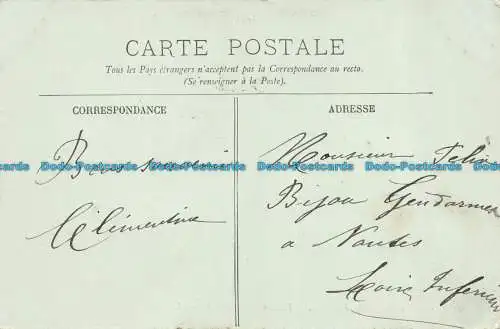 CARTE POSTALE
Tous les Pays étrangers n'acceptent pas la Correspondance au recto.
(Se renseigner à la Poste).
CORRESPONDANCE
ADRESSE
Bons souvenirs
Clémentine
Monsieur Felix
Bijou Gendarme
a Nantes
Loire Inférieure
Dodo-Postcards Dodo-Postcards Dodo-Postcards Dodo-Postcards Dodo-Postcards